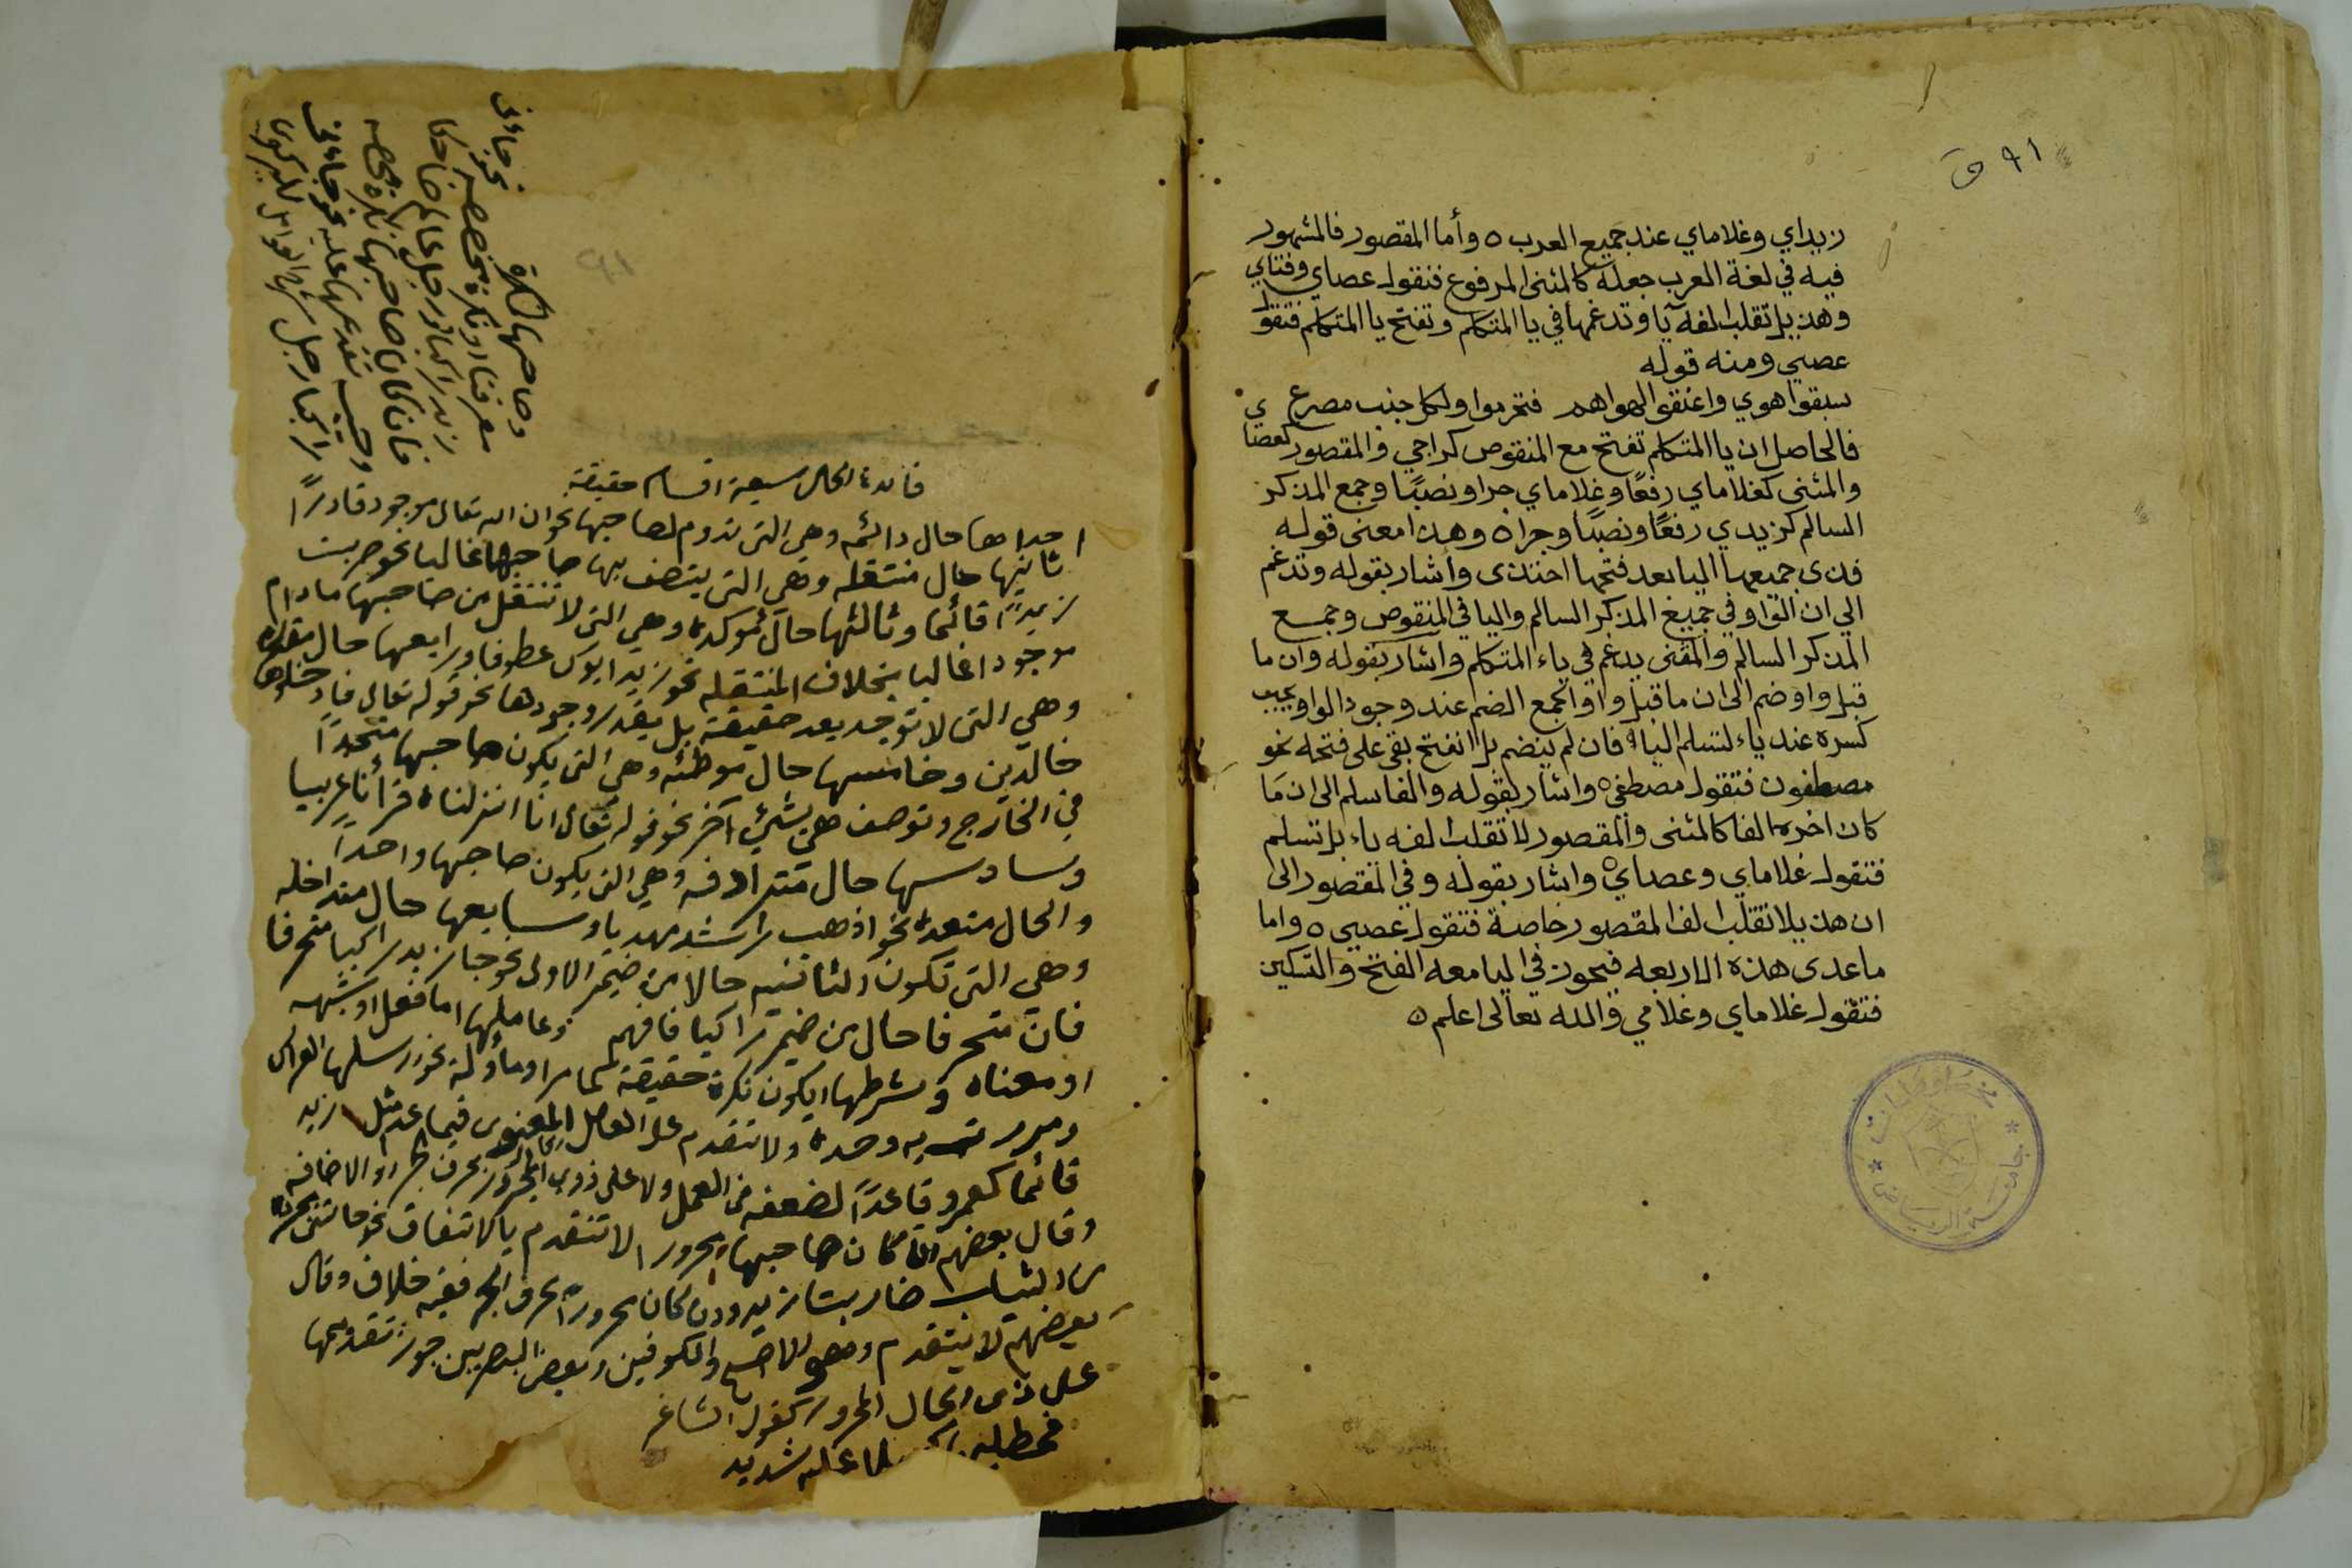 ٩١ ق
زيداي وغلاماي عند جميع العرب ٥ وأما المقصور فالمشهور
فيه في لغة العرب جعله كالمثنى المرفوع فتقول عصاي وفتاي
وهذيل تقلب الفه يا وتدغمها في يا المتكلم وتفتح يا المتكلم فتقول
عصيي ومنه قوله
سبقوا هوي واعنقوا لهواهم فتخرموا ولكل جنب مصرع
فالحاصل ان يا المتكلم تفتح مع المنقوص كراجي والمقصور كعصاي
والمثنى كغلاماي رفعًا وغلاماي جرا ونصبًا وجمع المذكر
السالم كزيدي رفعًا ونصبًا وجرا ٥ وهذا معنى قوله
فذي جميعها اليا بعد فتحها احتذى وأشار بقوله وتدغم
الي ان الواو في جميع المذكر السالم واليا في المنقوص وجمع
المذكر السالم والمثنى يدغم في ياء المتكلم واشار بقوله وان ما
قبل واو ضم الى ان ما قبل واو الجمع الضم عند وجود الواو يجب
كسره عند ياء لتسلم اليا فان لم ينضم بل انفتح بقي على فتحه نحو
مصطفون فتقول مصطفى ٥ واشار بقوله والفا سلم الى ان مَا
كان اخره الفا كالمثنى والمقصور لا تقلب الفه ياء بل تسلم
فتقول غلاماي وعصاي ٥ واشار بقوله وفي المقصور الى
ان هذيلا تقلب الف المقصور خاصة فتقول عصيي ٥ واما
ما عدى هذه الاربعه فيجوز في اليا معه الفتح والتسكين
فتقول غلاماي وغلامي والله تعالى اعلم ٥
جامعة الرياض
مخطوطات
٩١
فائدة الحال سبعة اقسام حقيقة
احداها حال دائمه وهي التى تدوم لصاحبها نحو ان الله تعالى موجود قادرًا
ثانيها حال منتقله وهي التى يتصف بها صاحبها غالبا نحو ضربت
زيدًا قائما وثالثها حال مؤكدة وهي التى لا تنتقل من صاحبها ما دام
موجودا غالبا بخلاف المنتقله نحو زيد ابوك عطوفا ورابعها حال مقدره
وهي التى لا توجد بعد حقيقة بل يقدر وجودها نحو قوله تعالى فادخلوها
خالدين وخامسها حال موطئه وهي التى يكون صاحبها متحدًا
في الخارج وتوصف هي بشئ آخر نحو قوله تعالى انا انزلناه قرأنا عربيا
وسادسها حال مترادفه وهي التى يكون صاحبها واحدًا
والحال متعدده نحو اذهب راشد مهديا وسابعها حال متداخله
وهي التى تكون الثانيه حالا من ضمير الاولى نحو جا زيد راكبا متحرفا
فان متحرفا حال من ضمير راكبا فافهم وعاملها اما فعل او شبهه
او معناه وشرطها ان يكون نكرة حقيقة كما مر او مأولة نحو ارسلها العراك
ومررت به وحده ولا تتقدم على العامل المعنوى فيما عدى مثل زيد
قائما كعمرو قاعدًا لضعفه في العمل ولا على ذوى الحال المجرور بحرف الجر او الاضافه
وقال بعضهم ان كان صاحبها مجرورا لا تتقدم بالاتفاق نحو جائتنى مجردة
من الثياب ضاربتا زيد وان كان مجرورًا بحرف الجر ففيه خلاف وقال
بعضهم لا يتقدم وهو الاصح والكوفين وبعض البصريين جوز تقديمها
على ذى الحال المجرور كقول الشاعر
عليه شديد
وصاحبها نكرة نحو جائنى
معرفتا او نكرة مخصصه
زيد راكبا ورجل عالم ضاحكا
فان كان صاحبها نكرة محضه
وجب تقديمها عليه نحو جائنى
راكبا رجل